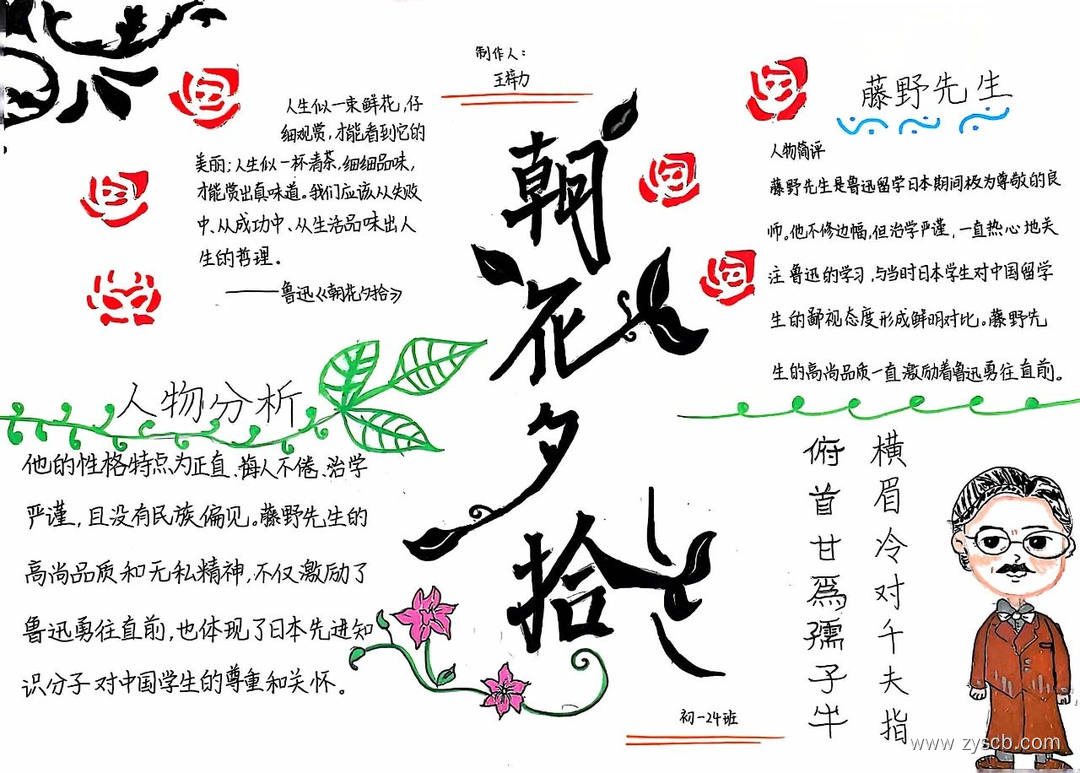 制作人：
王梓力
人生似一束鲜花，仔
细观赏，才能看到它的
美丽；人生似一杯清茶，细细品味，
才能赏出真味道。我们应该从失败
中、从成功中、从生活品味出人
生的哲理。
——鲁迅《朝花夕拾》
朝花夕拾
藤野先生
人物简评
藤野先生是鲁迅留学日本期间极为尊敬的良
师。他不修边幅，但治学严谨，一直热心地关
注鲁迅的学习，与当时日本学生对中国留学
生的鄙视态度形成鲜明对比。藤野先
生的高尚品质一直激励着鲁迅勇往直前。
人物分析
他的性格特点为正直、诲人不倦、治学
严谨，且没有民族偏见。藤野先生的
高尚品质和无私精神，不仅激励了
鲁迅勇往直前，也体现了日本先进知
识分子对中国学生的尊重和关怀。
横眉冷对千夫指
俯首甘为孺子牛
初一24班
www.zyscb.com